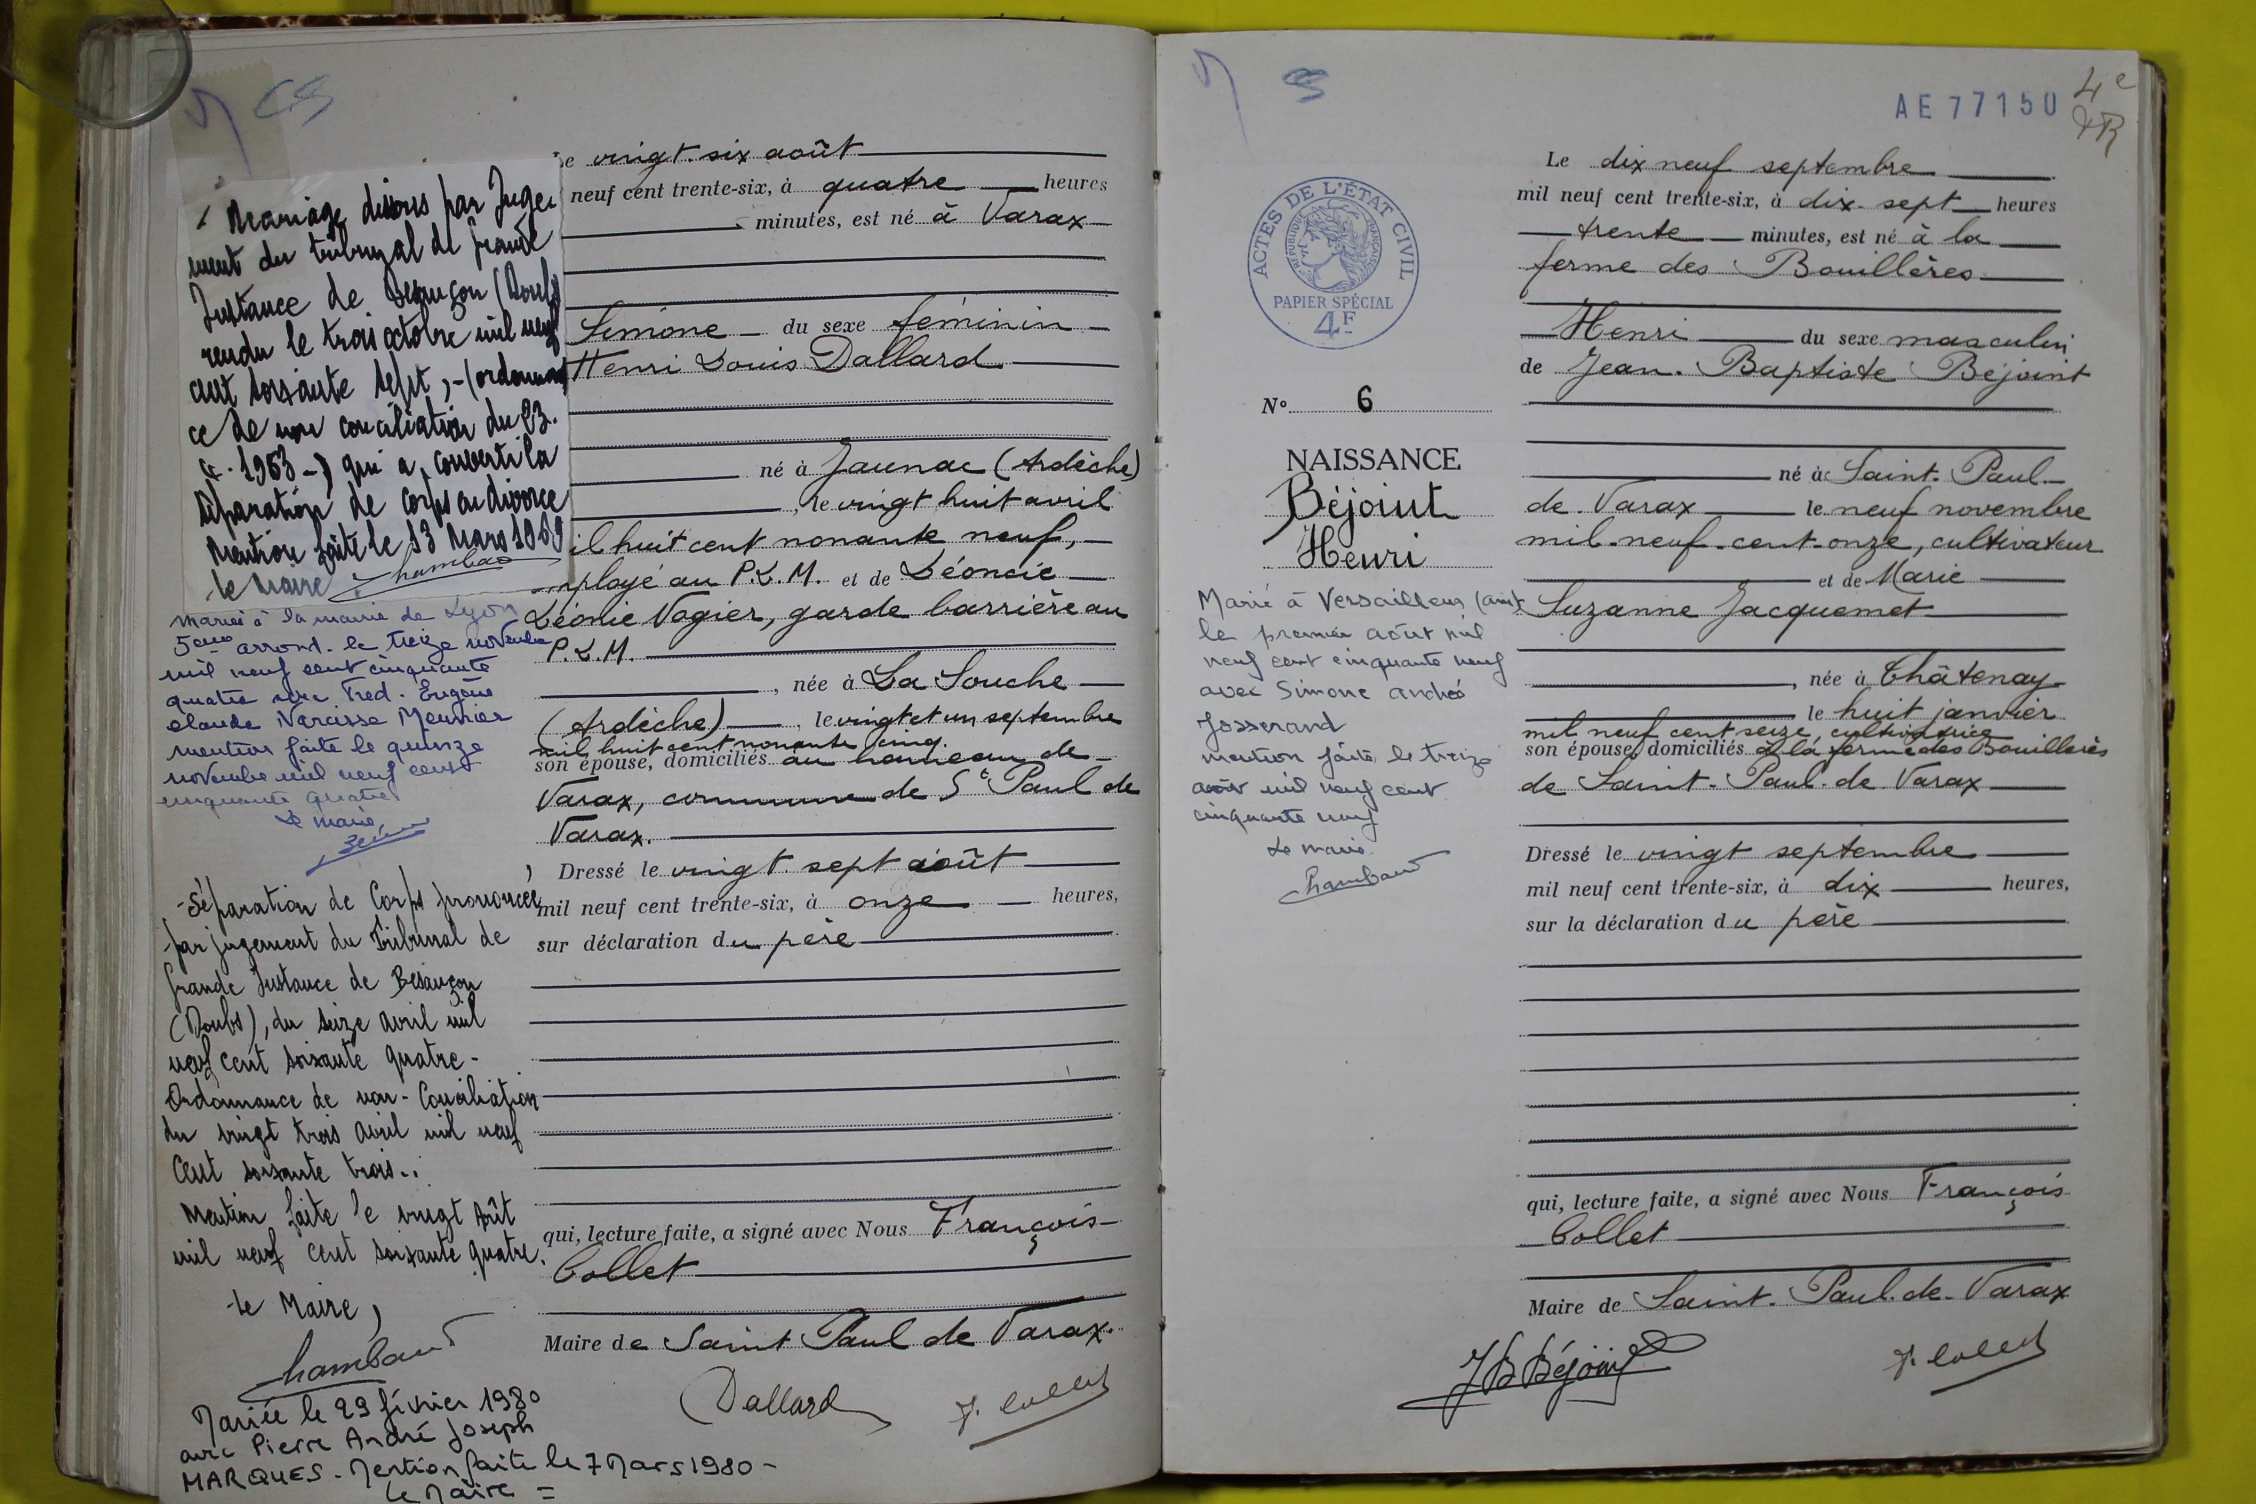 Mariage dissous par Juge-
ment du tribunal de grande
Instance de Besançon (Doubs)
rendu le trois octobre mil neuf
cent soixante sept, - (ordonnan
ce de non conciliation du 23.
4. 1963 -) qui a converti la
séparation de corps en divorce
Mention faite le 13 Mars 1969
le Maire
Chambaud
Mariée à la mairie de Lyon
5eme arrond. le treize novembre
mil neuf cent cinquante
quatre avec Fred. Eugène
Claude Narcisse Meunier
mention faite le quinze
novembre mil neuf cent
cinquante quatre
Le maire,
-Séparation de Corps prononcée,
par jugement du Tribunal de
Grande Instance de Besançon
(Doubs), du seize avril mil
neuf cent soixante quatre -
Ordonnance de non-Conciliation
du vingt trois avril mil neuf
cent soixante trois..
Mention faite le vingt Août
mil neuf cent soixante quatre.
Le Maire,
Chambaud
Mariée le 29 février 1980
avec Pierre André Joseph
MARQUES - Mention faite le 7 Mars 1980 -
Le Maire =
Le vingt. six août
neuf cent trente-six, à quatre heures
minutes, est né à Varax
Simone du sexe féminin
Henri Louis Dallard
né à Jaunac (Ardèche)
, le vingt huit avril
il huit cent nonante neuf,
mployé au P.L.M. et de Léoncie
Léonie Vogier, garde barrière au
P.L.M.
, née à La Souche
(Ardèche) , le vingt et un septembre
mil huit cent nonante cinq.
son épouse, domiciliés au hameau de
Varax, commune de St Paul de
Varax.
Dressé le vingt sept août
mil neuf cent trente-six, à onze heures,
sur déclaration du père
qui, lecture faite, a signé avec Nous François
Collet
Maire de Saint Paul de Varax.
Dallard F. Collet
AE 77150
4e
ACTES DE L'ÉTAT CIVIL
RÉPUBLIQUE FRANÇAISE
PAPIER SPÉCIAL
4F
No 6
NAISSANCE
Béjoint
Henri
Marié à Versailleux (Ain)
le premier août mil
neuf cent cinquante neuf
avec Simone Andréa
Josserand
mention faite le treize
août mil neuf cent
cinquante neuf
Le maire
Chambaud
Le dix neuf septembre
mil neuf cent trente-six, à dix-sept heures
trente minutes, est né à la
ferme des Bouillères
Henri du sexe masculin
de Jean-Baptiste Béjoint
né à Saint-Paul-
de-Varax le neuf novembre
mil-neuf-cent-onze, cultivateur
et de Marie
Suzanne Jacquemet
, née à Châtenay
le huit janvier
mil neuf cent seize, cultivatrice
son épouse, domiciliés à la ferme des Bouillères
de Saint-Paul-de-Varax
Dressé le vingt septembre
mil neuf cent trente-six, à dix heures,
sur la déclaration du père
qui, lecture faite, a signé avec Nous François
Collet
Maire de Saint-Paul-de-Varax
JB Béjoint F. Collet